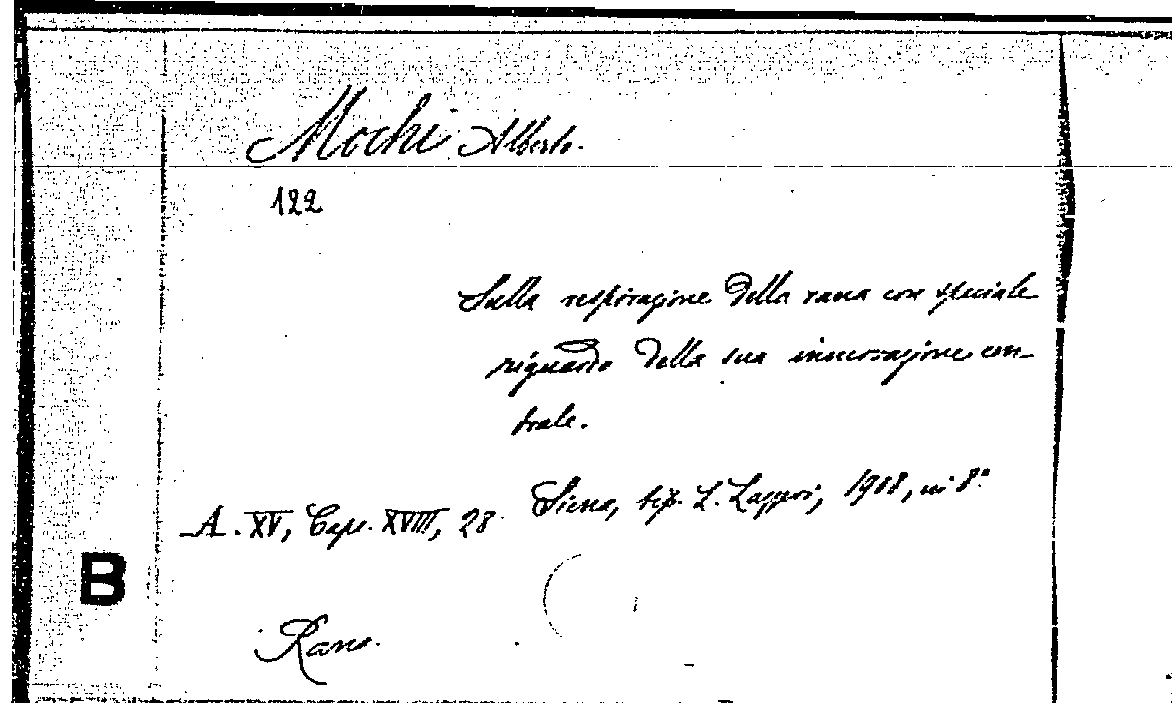 Mochi Alberto.
122
Sulla respirazione della rana con speciale
riguardo della sua innervazione cen-
trale.
Siena, tip. L. Lazzeri, 1908, in 8°
A. XV, Caps. XVIII, 28
B
Rane.